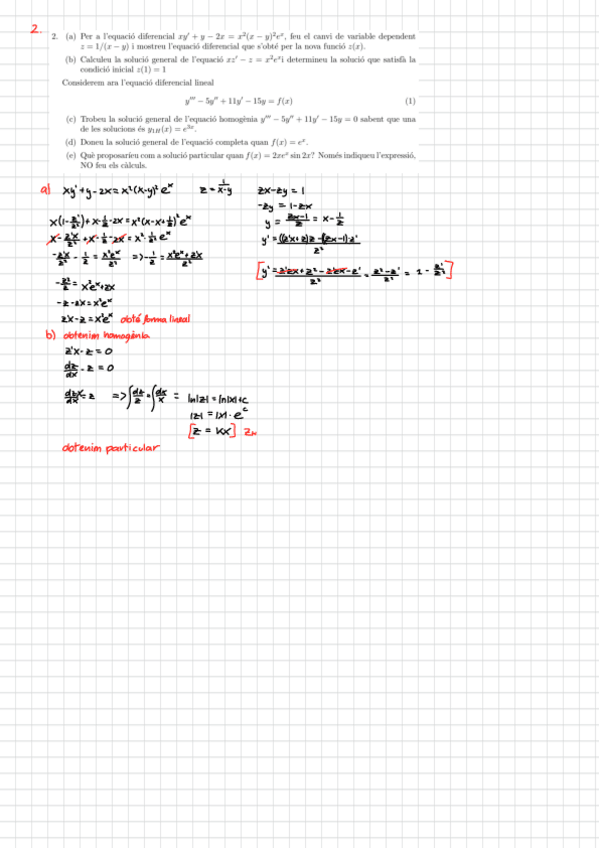 2.
2. (a) Per a l'equació diferencial xy′ + y − 2x = x²(x − y)²eˣ, feu el canvi de variable dependent
z = 1/(x − y) i mostreu l'equació diferencial que s'obté per la nova funció z(x).
(b) Calculeu la solució general de l'equació xz′ − z = x²eˣi determineu la solució que satisfà la
condició inicial z(1) = 1
Considerem ara l'equació diferencial lineal
y‴ − 5y″ + 11y′ − 15y = f(x) (1)
(c) Trobeu la solució general de l'equació homogènia y‴ − 5y″ + 11y′ − 15y = 0 sabent que una
de les solucions és y₁H(x) = e³ˣ.
(d) Doneu la solució general de l'equació completa quan f(x) = eˣ.
(e) Què proposaríeu com a solució particular quan f(x) = 2xeˣ sin 2x? Només indiqueu l'expressió,
NO feu els càlculs.
a) xy' + y - 2x = x²(x-y)² eˣ z = 1/(x-y) zx - zy = 1
-zy = 1 - zx
y = (zx-1)/z = x - 1/z
x(1 - z'/z²) + x - 1/z - 2x = x²(x - x + 1/z)² eˣ
y' = ((z'x+z)z - (zx-1)·z')/z²
x - z'x/z² + x - 1/z - 2x = x² · 1/z² eˣ
[y' = (z'zx + z² - z'zx - z')/z² = (z² - z')/z² = 1 - z'/z²]
obté forma lineal
b) obtenim homogènia
z'x - z = 0
=> ∫dz/z = ∫dx/x = ln|z| = ln|x| + c
|z| = |x| · eᶜ
[z = kx] zₕ
obtenim particular